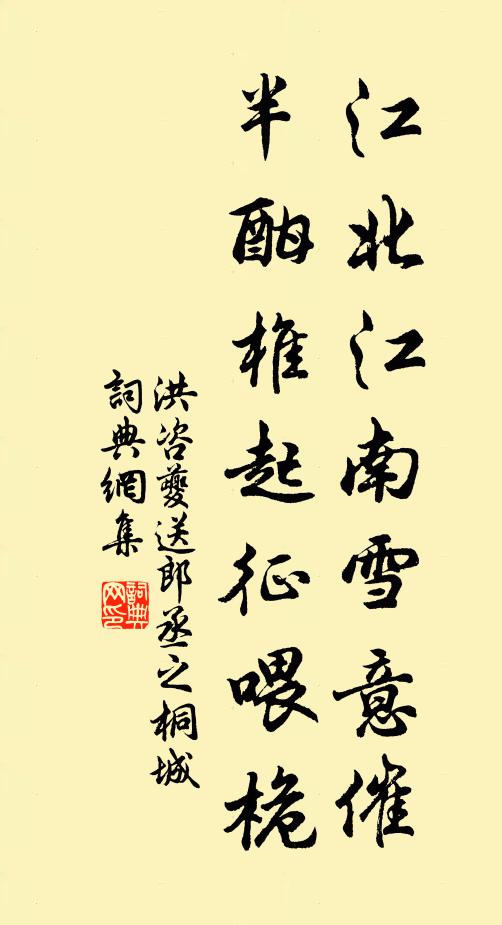 江北江南雪意催
半酣椎起征喂桅
洪咨夔送郎丞之桐城
詞典網集
詞典網印